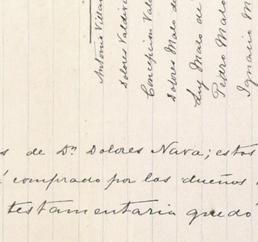 Antonio Villa
Dolores Valdiv
Concepcion Val
Dolores Malo de
Luz Malo de
Pedro Malo
Ignacio M
s de Dn Dolores Nava; estos
comprado por los dueños
testamentaria quedó